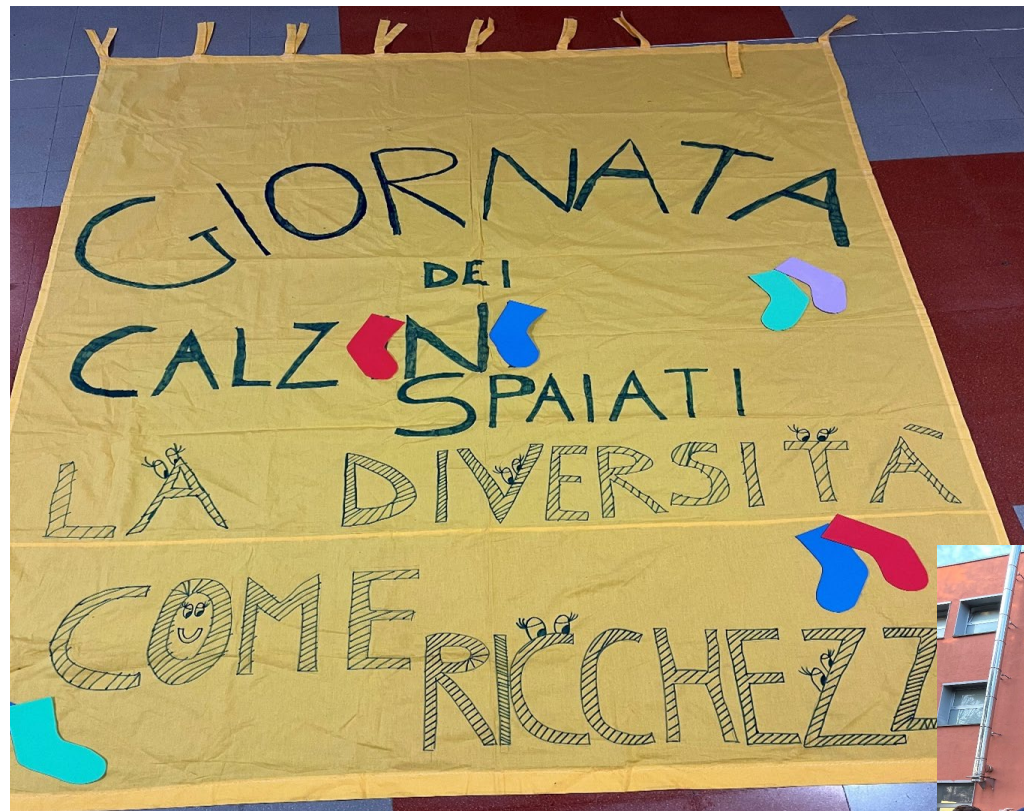 GIORNATA
DEI
CALZ N
SPAIATI
LA DIVERSITÀ
COME
RICCHEZZ